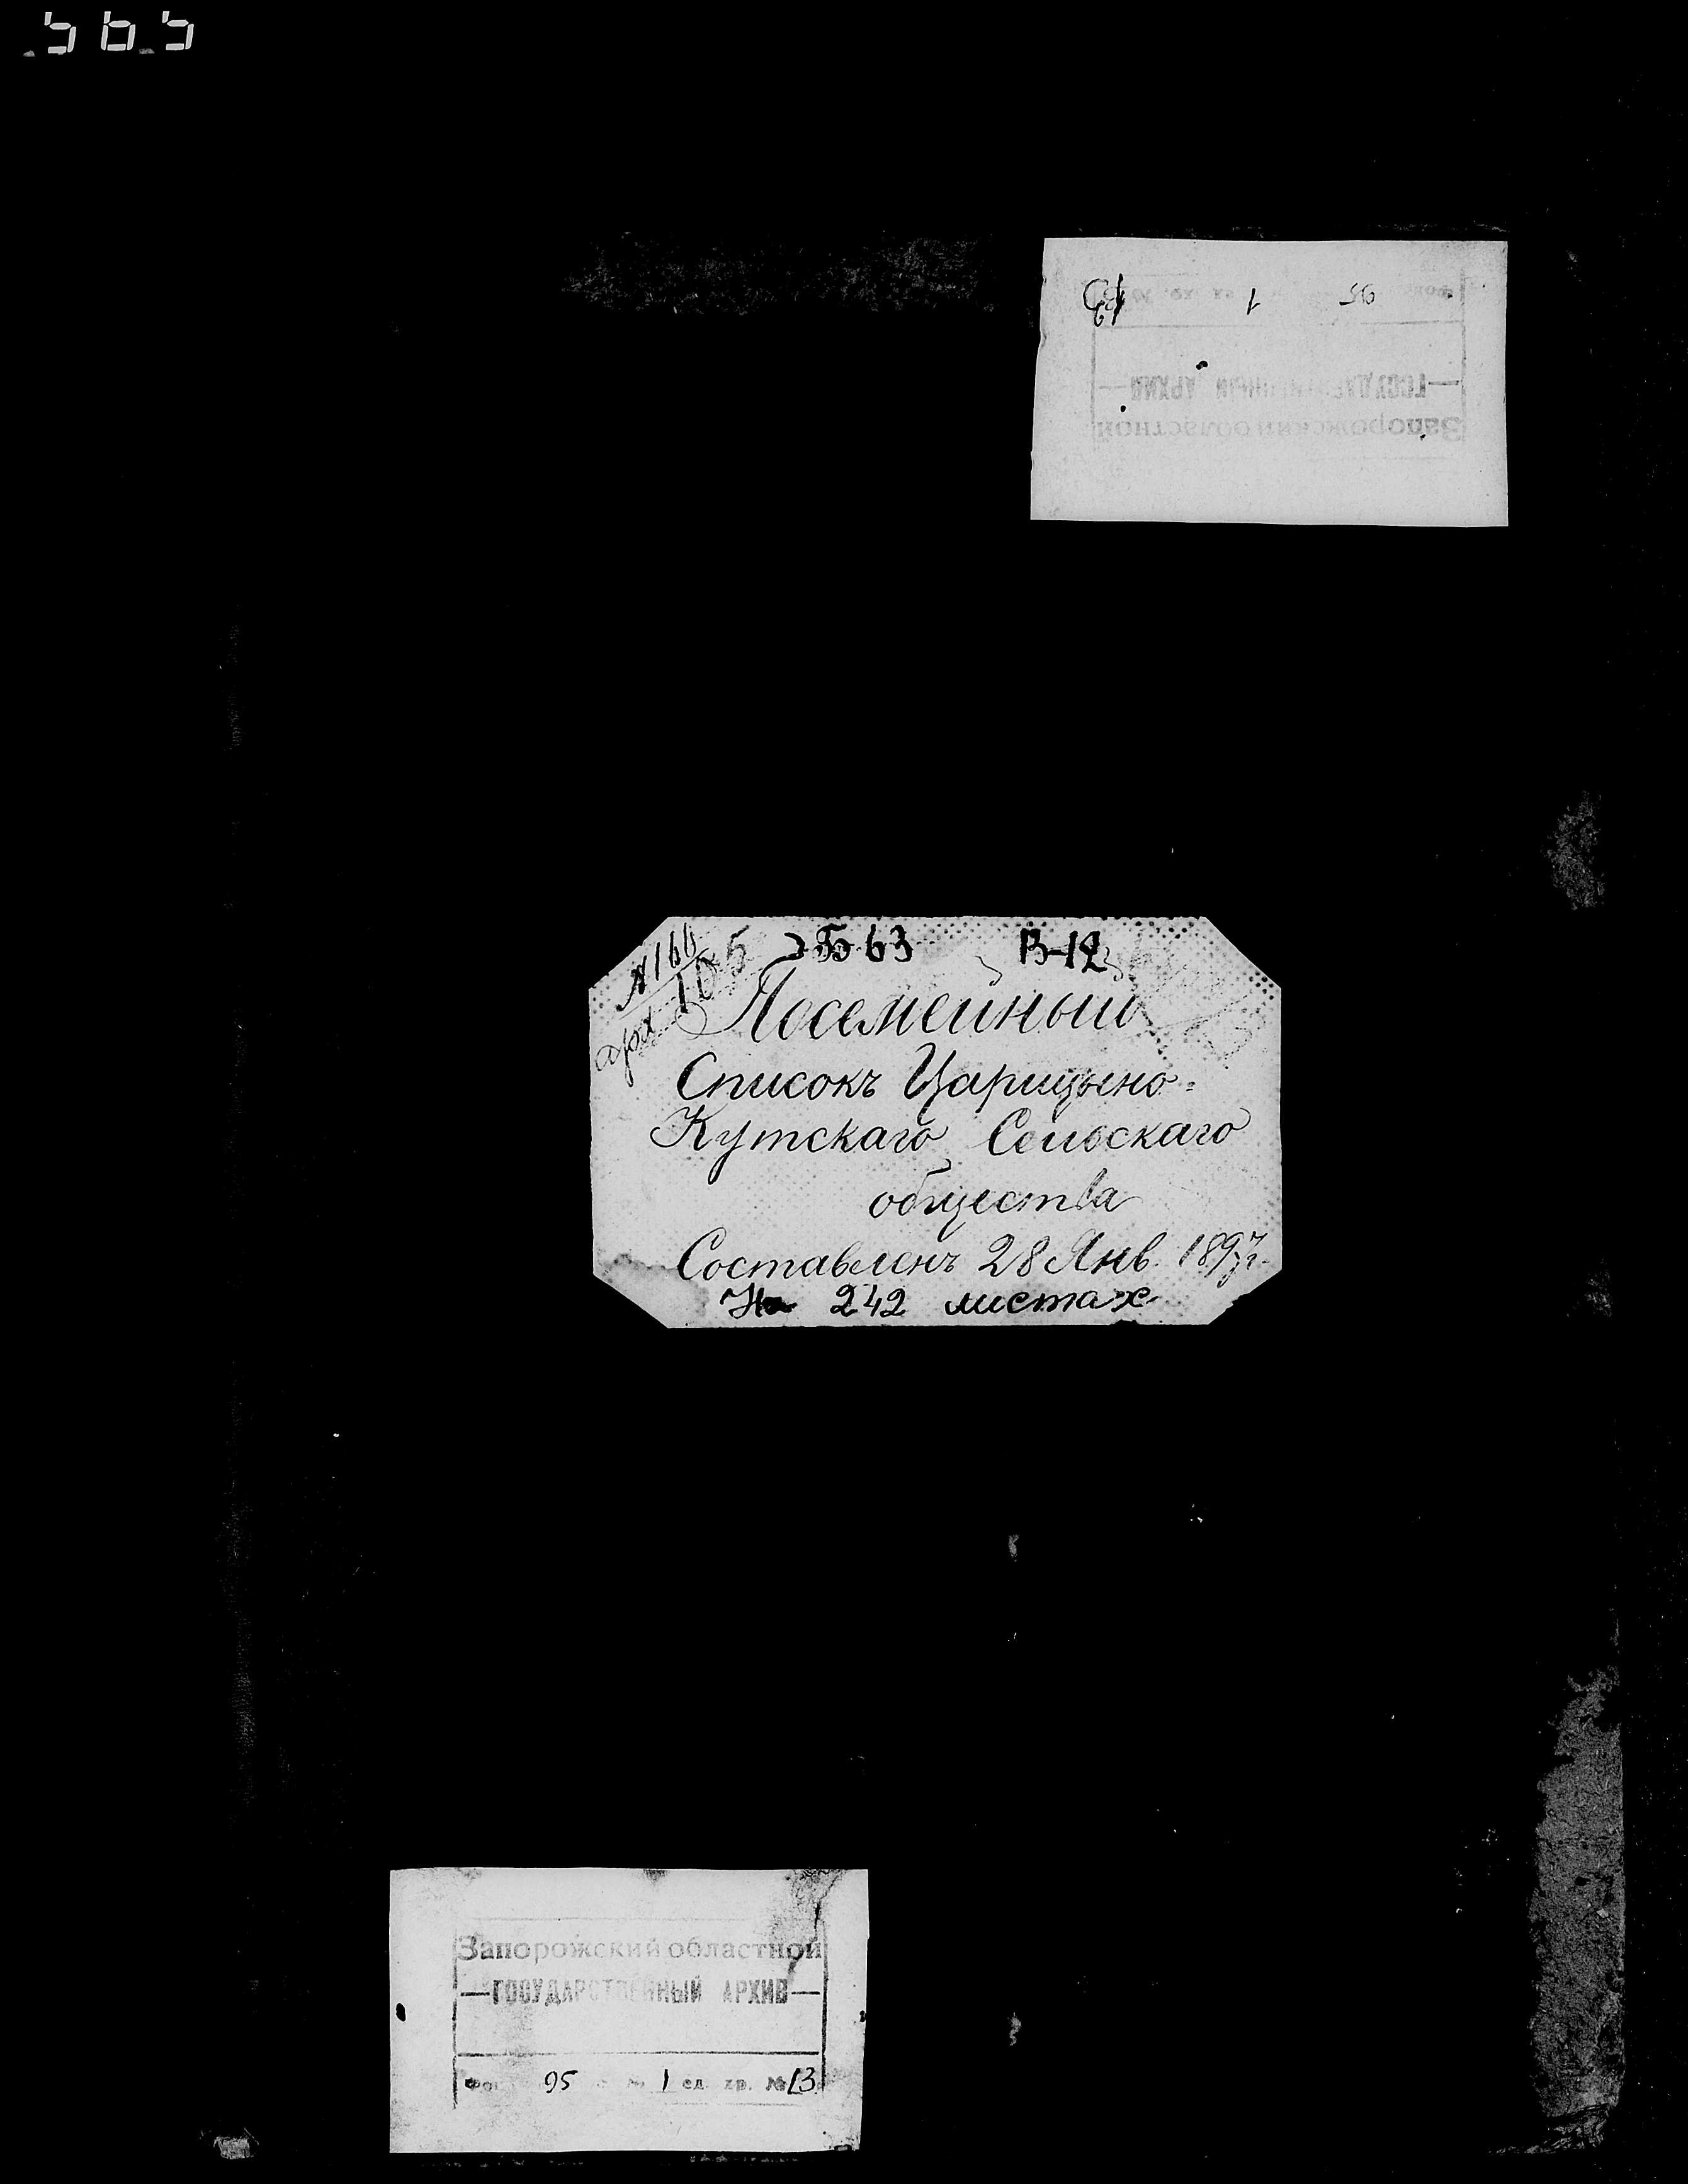 565
95 1 13
Запорожский областной
ГОСУДАРСТВЕННЫЙ АРХИВ
№166
арх 105
Б 63 В-12
Посемейный
Списокъ Царицыно-
Кутскаго Сельскаго
общества
Составленъ 28 Янв. 1897 г.
На 242 листах
Запорожский областной
ГОСУДАРСТВЕННЫЙ АРХИВ
95 1 ед. хр. № 13